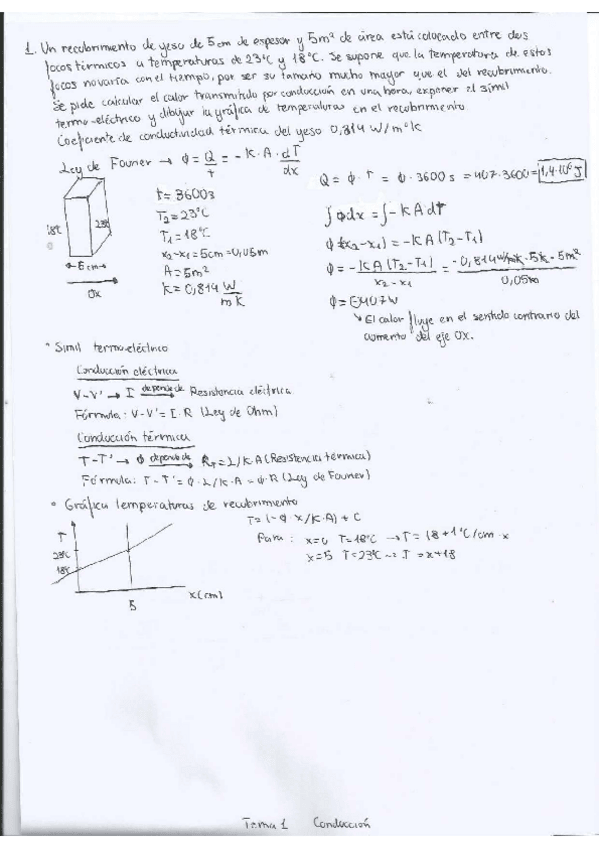 1. Un recubrimiento de yeso de 5cm de espesor y 5m² de área está colocado entre dos
focos térmicos a temperaturas de 23°C y 18°C. Se supone que la temperatura de estos
focos no varía con el tiempo, por ser su tamaño mucho mayor que el del recubrimiento.
Se pide calcular el calor transmitido por conducción en una hora, exponer el símil
termo-eléctrico y dibujar la gráfica de temperaturas en el recubrimiento
Coeficiente de conductividad térmica del yeso 0,814 W/m°K
Ley de Fourier → ϕ = Q/t = -K·A·dT/dx
Q = ϕ·t = ϕ·3600s = 407·3600 = 1,4·10⁶ J
18°C
23°C
5cm
Ox
t = 3600s
T₂ = 23°C
T₁ = 18°C
x₂-x₁ = 5cm = 0,05m
A = 5m²
K = 0,814 W/mK
∫ϕdx = ∫-KAdT
ϕ(x₂-x₁) = -KA(T₂-T₁)
ϕ = -KA(T₂-T₁)/x₂-x₁ = -0,814W/mK·5K·5m²/0,05m
ϕ = -407W
↘ El calor fluye en el sentido contrario del
aumento del eje OX.
° Símil termoeléctrico
Conducción eléctrica
V-V' → I depende de Resistencia eléctrica
Fórmula: V-V' = I·R (Ley de Ohm)
Conducción térmica
T-T' → ϕ depende de R_T = L/K·A (Resistencia térmica)
Fórmula: T-T' = ϕ·L/K·A = ϕ·R (Ley de Fourier)
° Gráfica temperaturas de recubrimiento
T = (-ϕ·x/K·A) + C
Para: x=0 T=18°C → T = 18+1°C/cm·x
x=5 T=23°C → T = x+18
T
23°C
18°C
x(cm)
5
Tema 1 Conducción